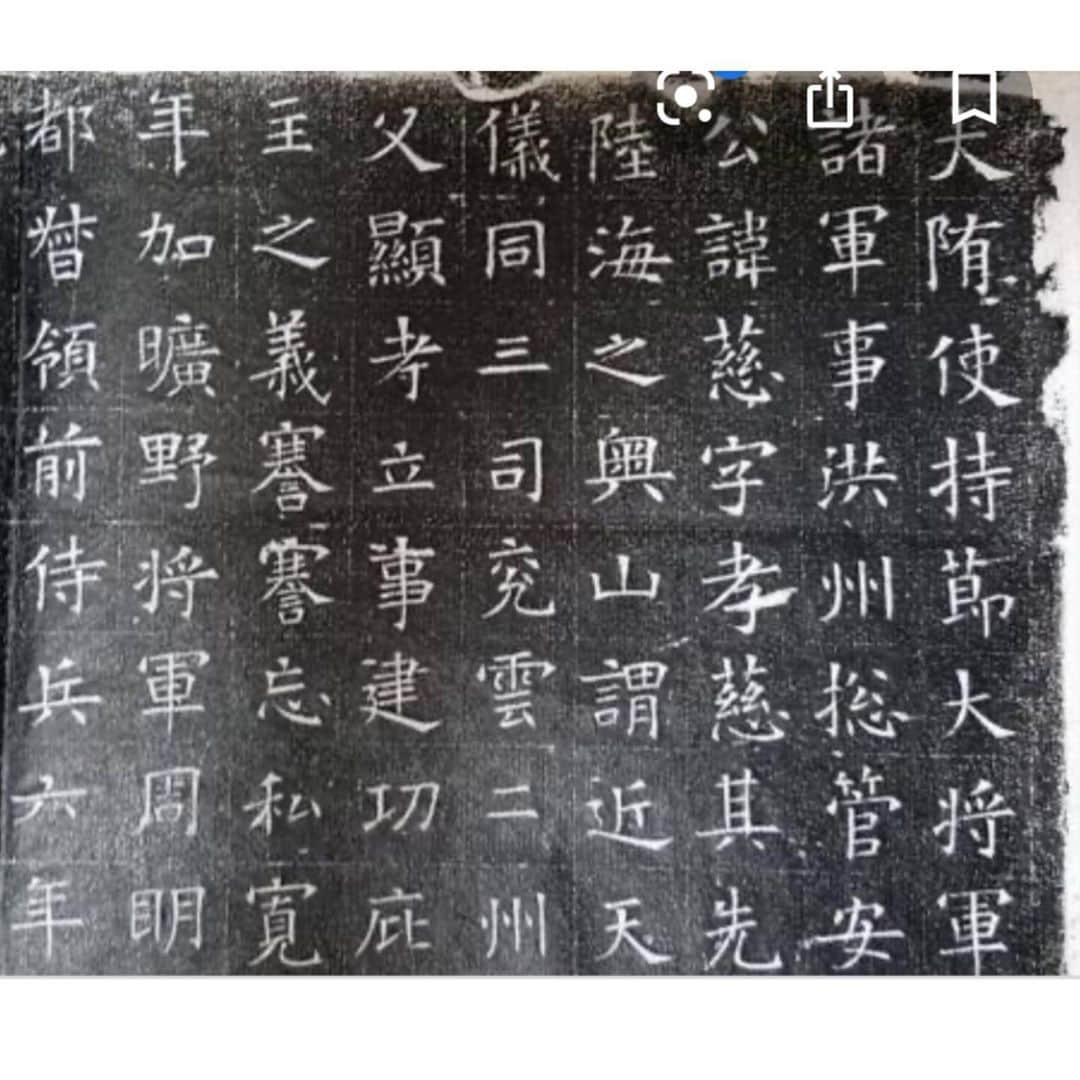 大陏使持節大将軍
諸軍事洪州捴管安
公諱慈字孝慈其先
陸海之奧山謂近天
儀同三司兖雲二州
父顯考立事建功庇
主之義謇謇忘私寬
年加曠野将軍周明
都督領前侍兵六年